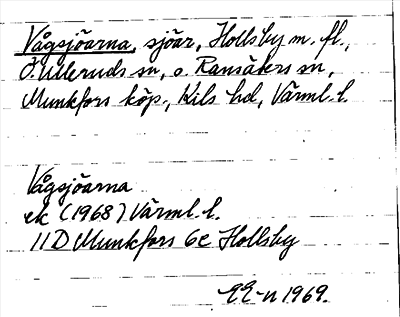 Vågsjöarna, sjöar, Hollsby m. fl.,
Ö. Ulleruds sn, o. Ransäters sn,
Munkfors köp., Kils hd, Värml. l.
Vågsjöarna
ek (1968) Värml. l.
11D Munkfors 6c Hollsby
1969.